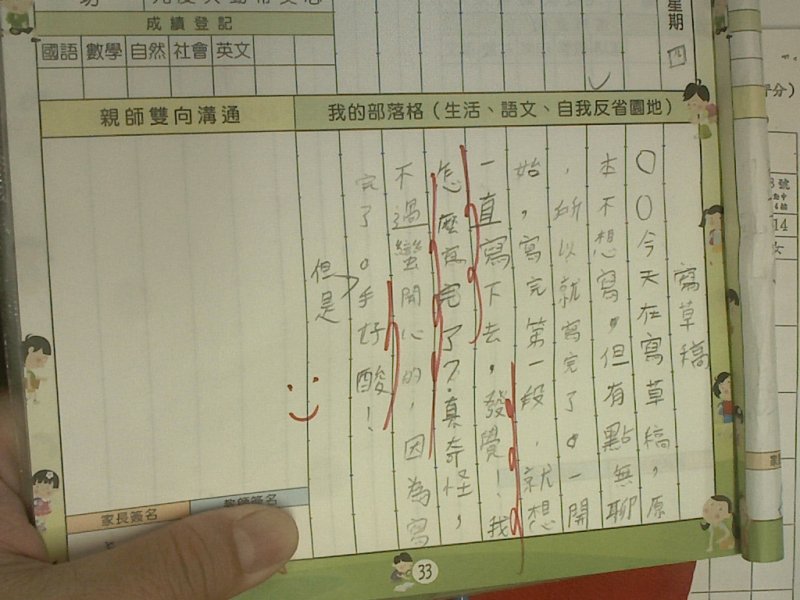 成績登記
國語 數學 自然 社會 英文
星期 四
親師雙向溝通
我的部落格(生活、語文、自我反省園地)
寫草稿
〇〇今天在寫草稿，原
本不想寫，但有點無聊
，所以就寫完了。一開
始，寫完第一段，就想
一直寫下去，發覺！我
怎麼寫完了？真奇怪，
不過蠻開心的，因為寫
完了。手好酸！
但是
家長簽名
教師簽名
33
14